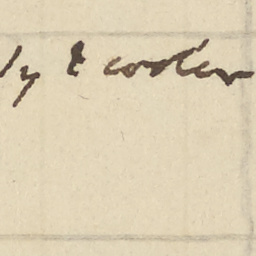 ly & cooler